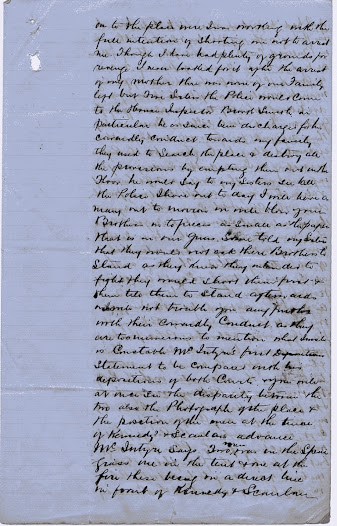 on to the plain
full intention of Shooting me not to arrest
me Though I had plenty of grounds for
revenge I never looked for it after the arrest
of my Mother there was none of our Family
left but Two Sisters the Police would Come
to the House Inspector Brook Smith in
particular he is since been discharged for his
cowardly conduct towards my family
they used to Search the place & destroy all
the provisions by emptying them out on the
Floor he would Say to my Sisters See all
the Police I have out to day I will have as
many out to morrow we will blow your
Brothers in to pieces as Small as the paper
that is in our Guns. I have told my Sisters
that they would not ask there Brothers to
Stand as they knew they intended to
fight they would Shoot them first &
then tell them to Stand afterwards
I will not trouble you any further
with their Cowardly Conduct as they
are too numerous to mention
Constable McIntyre's first Deposition
Statement to be Compared with
depositions of both Courts
at once See the disparity between the
two also the Photograph of the place &
the position of the men at the time
of Kennedy & Scanlan's advance
McIntyre Says Two men in the Spear
grass one in the tent & one at the
fire there being on a direct line
in front of Kennedy & Scanlan